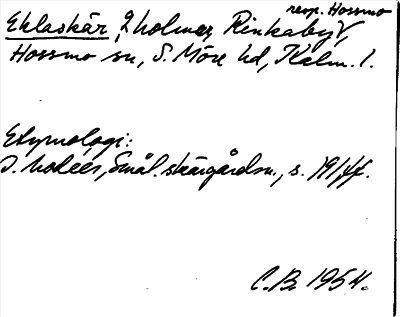 resp. Hossmo
Eklaskär, 2 holmar, Rinkaby V,
Hossmo sn, S. Möre hd, Kalm. l.
Etymologi:
I. Modéer, Smål. skärgårdsn., s. 191, ff.
C.B. 1954.